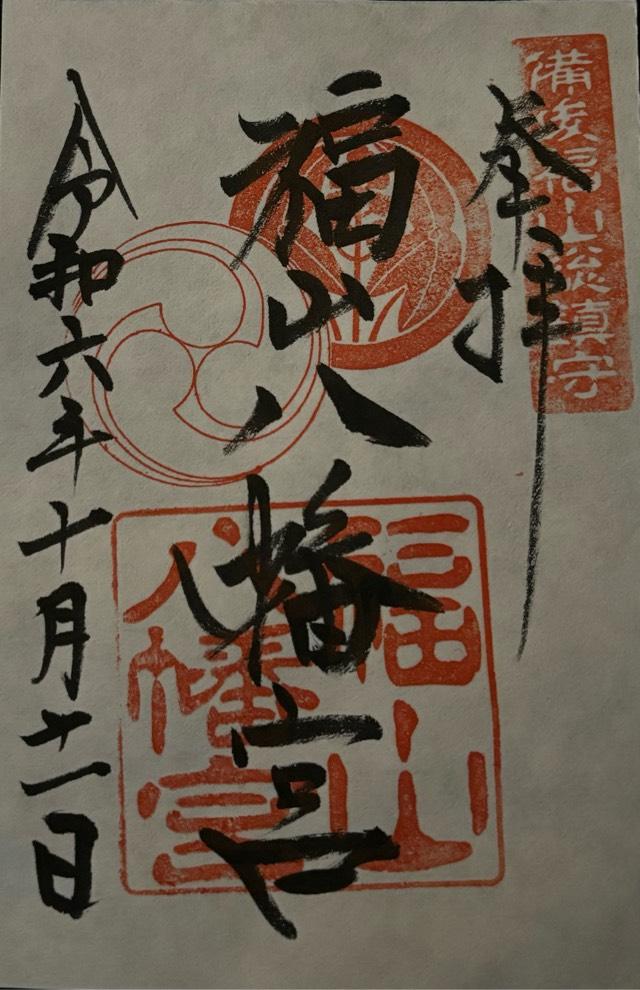 備後福山総鎮守
奉拝
福山八幡宮
福山
八幡宮
令和六年十月十一日